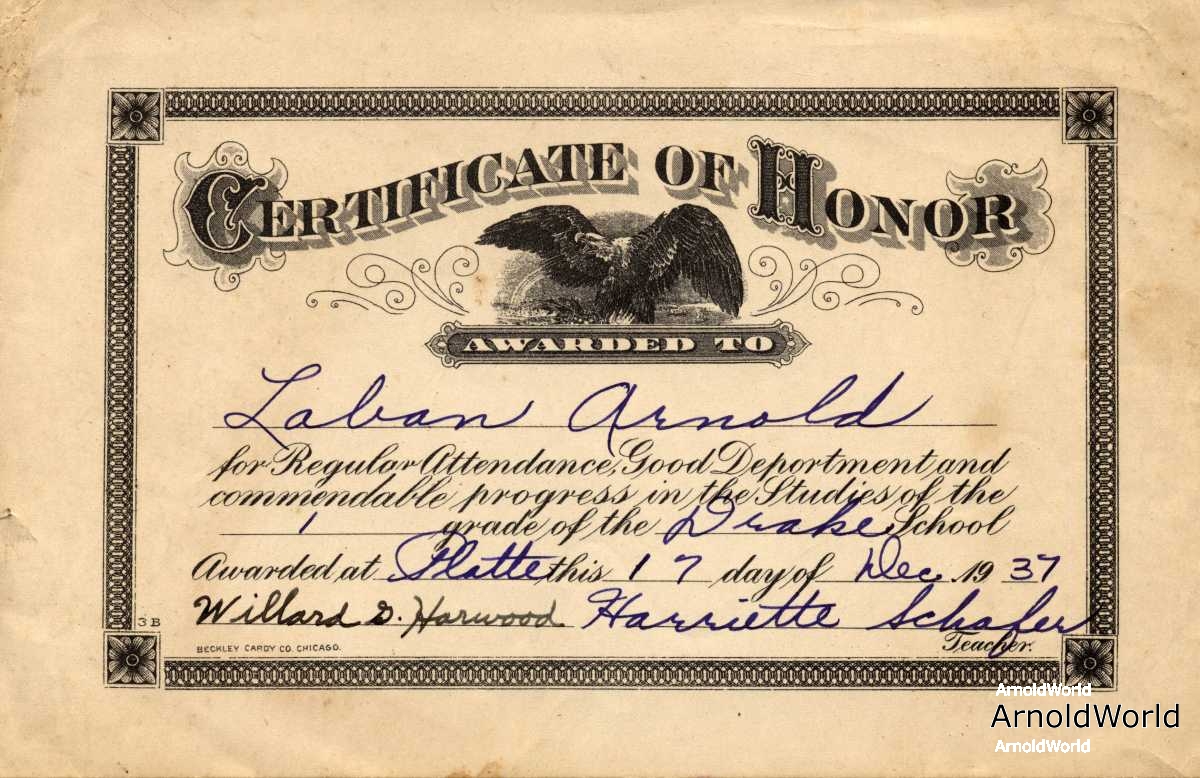 CERTIFICATE OF HONOR
AWARDED TO
Laban Arnold
for Regular Attendance, Good Deportment and
commendable progress in the Studies of the
1 grade of the Drake School
Awarded at Platte this 17 day of Dec. 1937
Willard D. Harwood Harriette Schafer
3 B
BECKLEY CARDY CO. CHICAGO.
Teacher.
ArnoldWorld
ArnoldWorld
ArnoldWorld